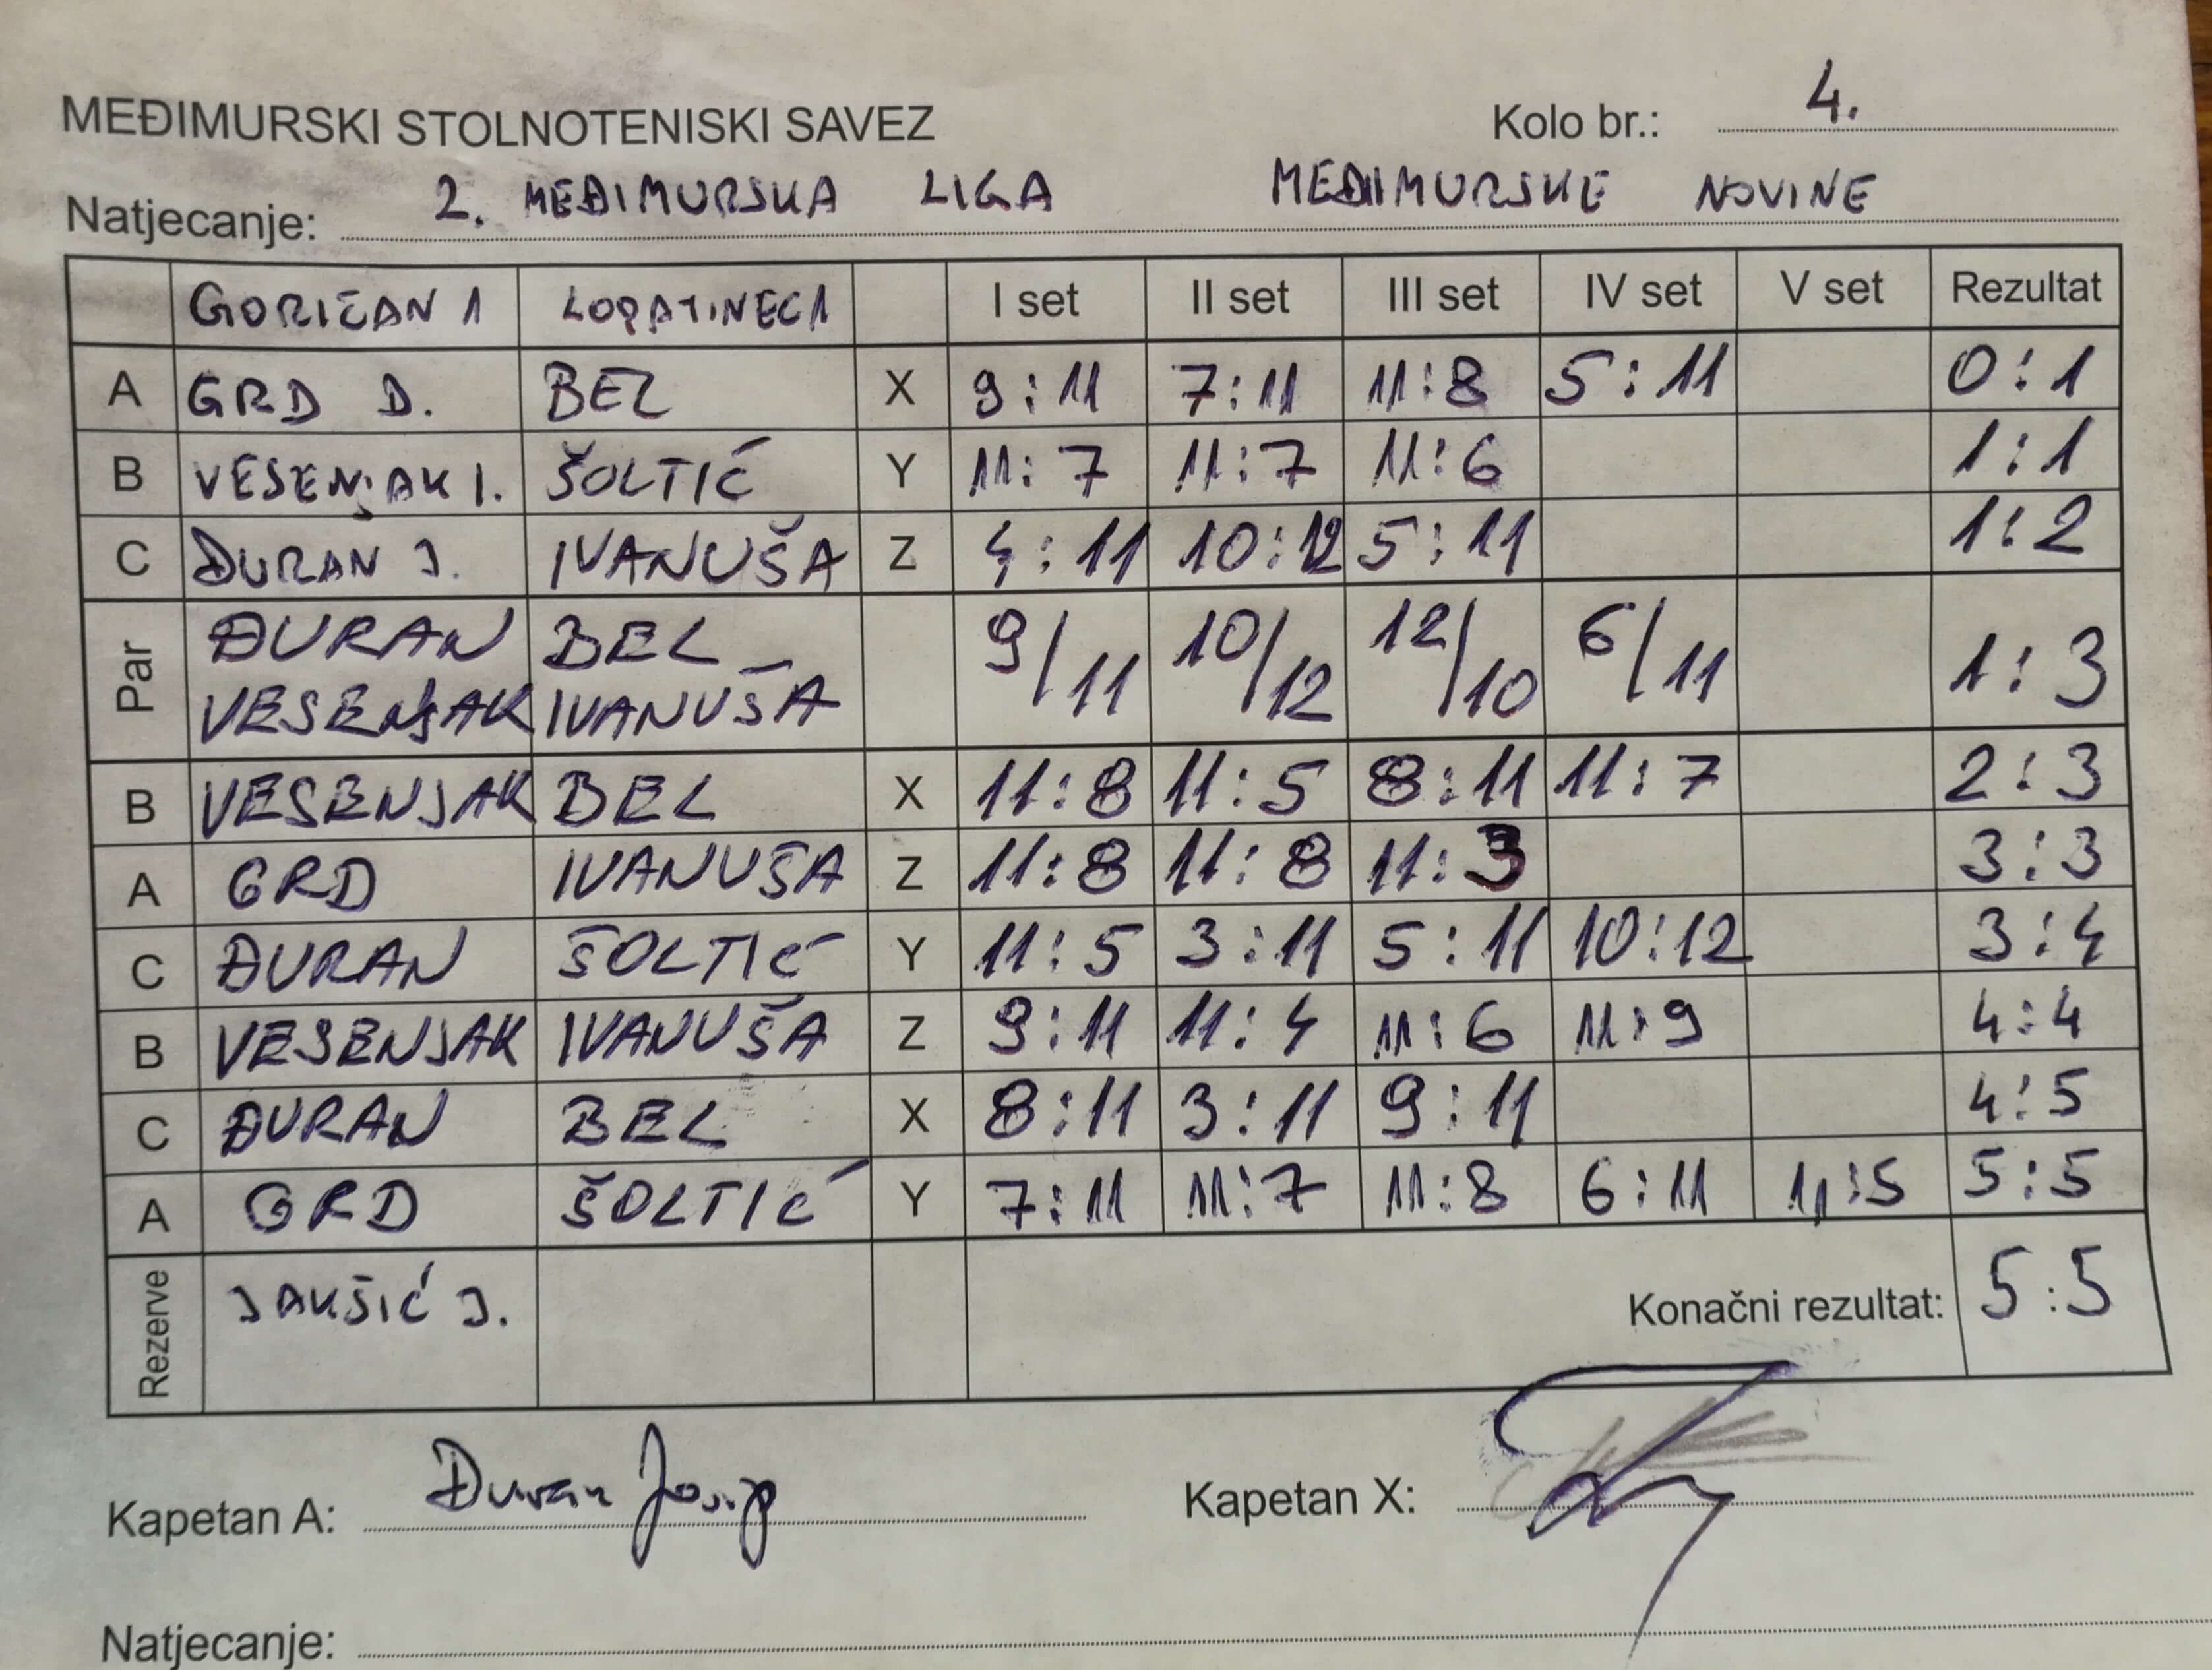 MEĐIMURSKI STOLNOTENISKI SAVEZ Kolo br.: 4.
Natjecanje: 2. MEĐIMURSKA LIGA MEĐIMURSKE NOVINE
GORIČAN 1 LOPATINEC 1 I set II set III set IV set V set Rezultat
A GRD D. BEL X 9:11 7:11 11:8 5:11 0:1
B VESENJAK I. ŠOLTIĆ Y 11:7 11:7 11:6 1:1
C ĐURAN J. IVANUŠA Z 4:11 10:12 5:11 1:2
Par ĐURAN BEL 9/11 10/12 12/10 6/11 1:3
VESENJAK IVANUŠA
B VESENJAK BEL X 11:8 11:5 8:11 11:7 2:3
A GRD IVANUŠA Z 11:8 11:8 11:3 3:3
C ĐURAN ŠOLTIĆ Y 11:5 3:11 5:11 10:12 3:4
B VESENJAK IVANUŠA Z 9:11 11:4 11:6 11:9 4:4
C ĐURAN BEL X 8:11 3:11 9:11 4:5
A GRD ŠOLTIĆ Y 7:11 11:7 11:8 6:11 11:5 5:5
Rezerve JAKŠIĆ J. Konačni rezultat: 5:5
Kapetan A: Đuran Josip Kapetan X:
Natjecanje: